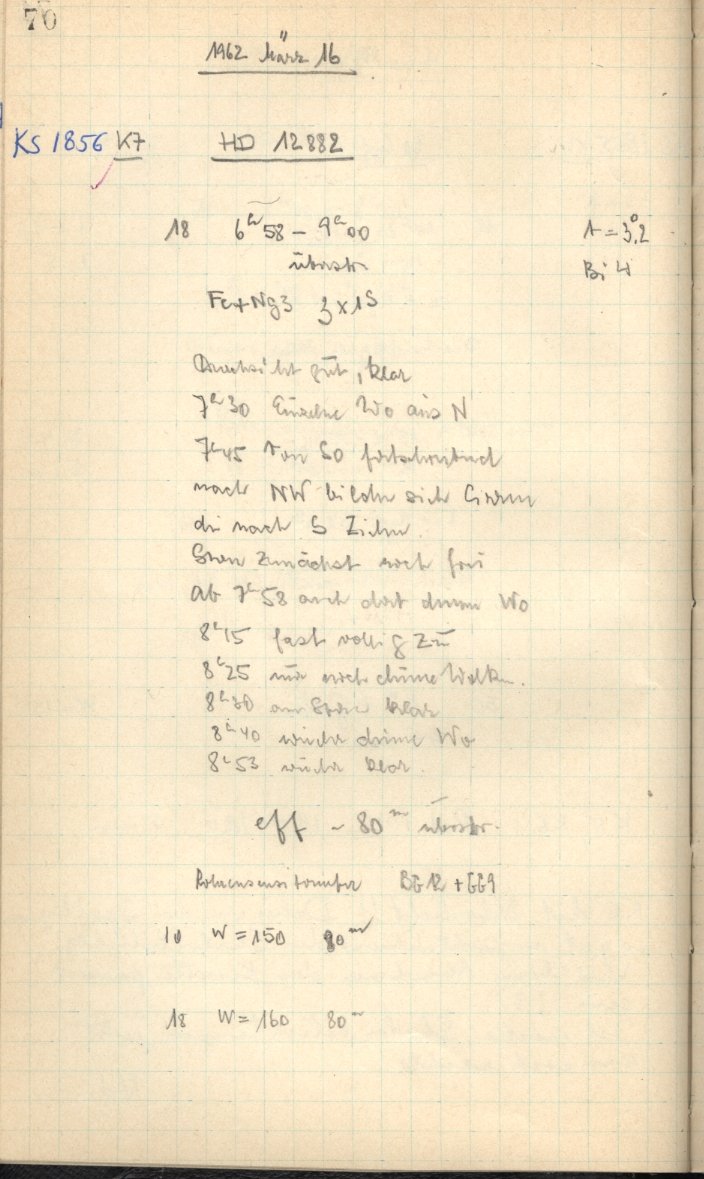 70
1962 März 16
KS 1856 K7 HD 12882
18 6ʰ58 – 9ʰ00 t = 3°,2
überstr. Bi 4
Fe+Ng3 3x1S
Durchsicht gut, klar
7ʰ30 Einzelne Wo aus N
7ʰ45 Von SO fortschreitend
nach NW bilden sich Cirren
die nach S Ziehen.
Stern Zunächst noch frei
Ab 7ʰ58 auch dort dünne Wo
8ʰ15 fast völlig Zu
8ʰ25 nur noch dünne Wolken.
8ʰ30 am Stern klar
8ʰ40 wieder dünne Wo
8ʰ53 wieder klar.
eff ~ 80ᵐ überstr.
Röhrensensitometer BG12 + GG9
10 W = 150 90ᵐ
18 W = 160 80ᵐ